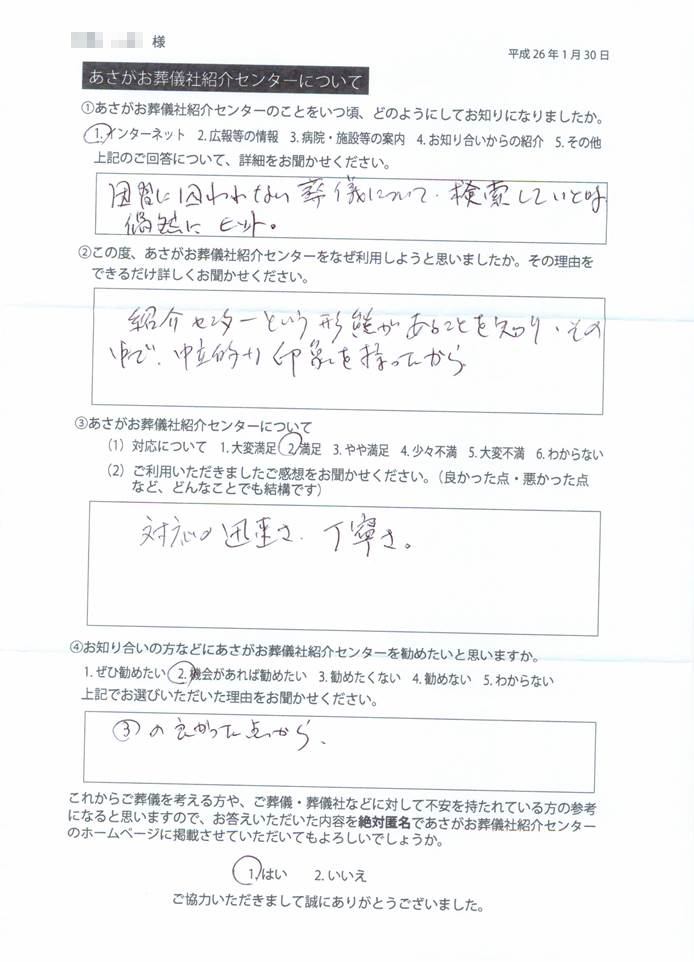 様
平成26年1月30日
あさがお葬儀社紹介センターについて
①あさがお葬儀社紹介センターのことをいつ頃、どのようにしてお知りになりましたか。
1.インターネット 2.広報等の情報 3.病院・施設等の案内 4.お知り合いからの紹介 5.その他
上記のご回答について、詳細をお聞かせください。
因習に囚われない葬儀について、検索していた時
偶然にヒット。
②この度、あさがお葬儀社紹介センターをなぜ利用しようと思いましたか。その理由を
できるだけ詳しくお聞かせください。
紹介センターという形態があることを知り、その
中で、中立的な印象を持ったから
③あさがお葬儀社紹介センターについて
（1）対応について 1.大変満足 2.満足 3.やや満足 4.少々不満 5.大変不満 6.わからない
（2）ご利用いただきましたご感想をお聞かせください。（良かった点・悪かった点
など、どんなことでも結構です）
対応の迅速さ、丁寧さ。
④お知り合いの方などにあさがお葬儀社紹介センターを勧めたいと思いますか。
1.ぜひ勧めたい 2.機会があれば勧めたい 3.勧めたくない 4.勧めない 5.わからない
上記でお選びいただいた理由をお聞かせください。
③の良かった点から、
これからご葬儀を考える方や、ご葬儀・葬儀社などに対して不安を持たれている方の参考
になると思いますので、お答えいただいた内容を絶対匿名であさがお葬儀社紹介センター
のホームページに掲載させていただいてもよろしいでしょうか。
1.はい 2.いいえ
ご協力いただきまして誠にありがとうございました。